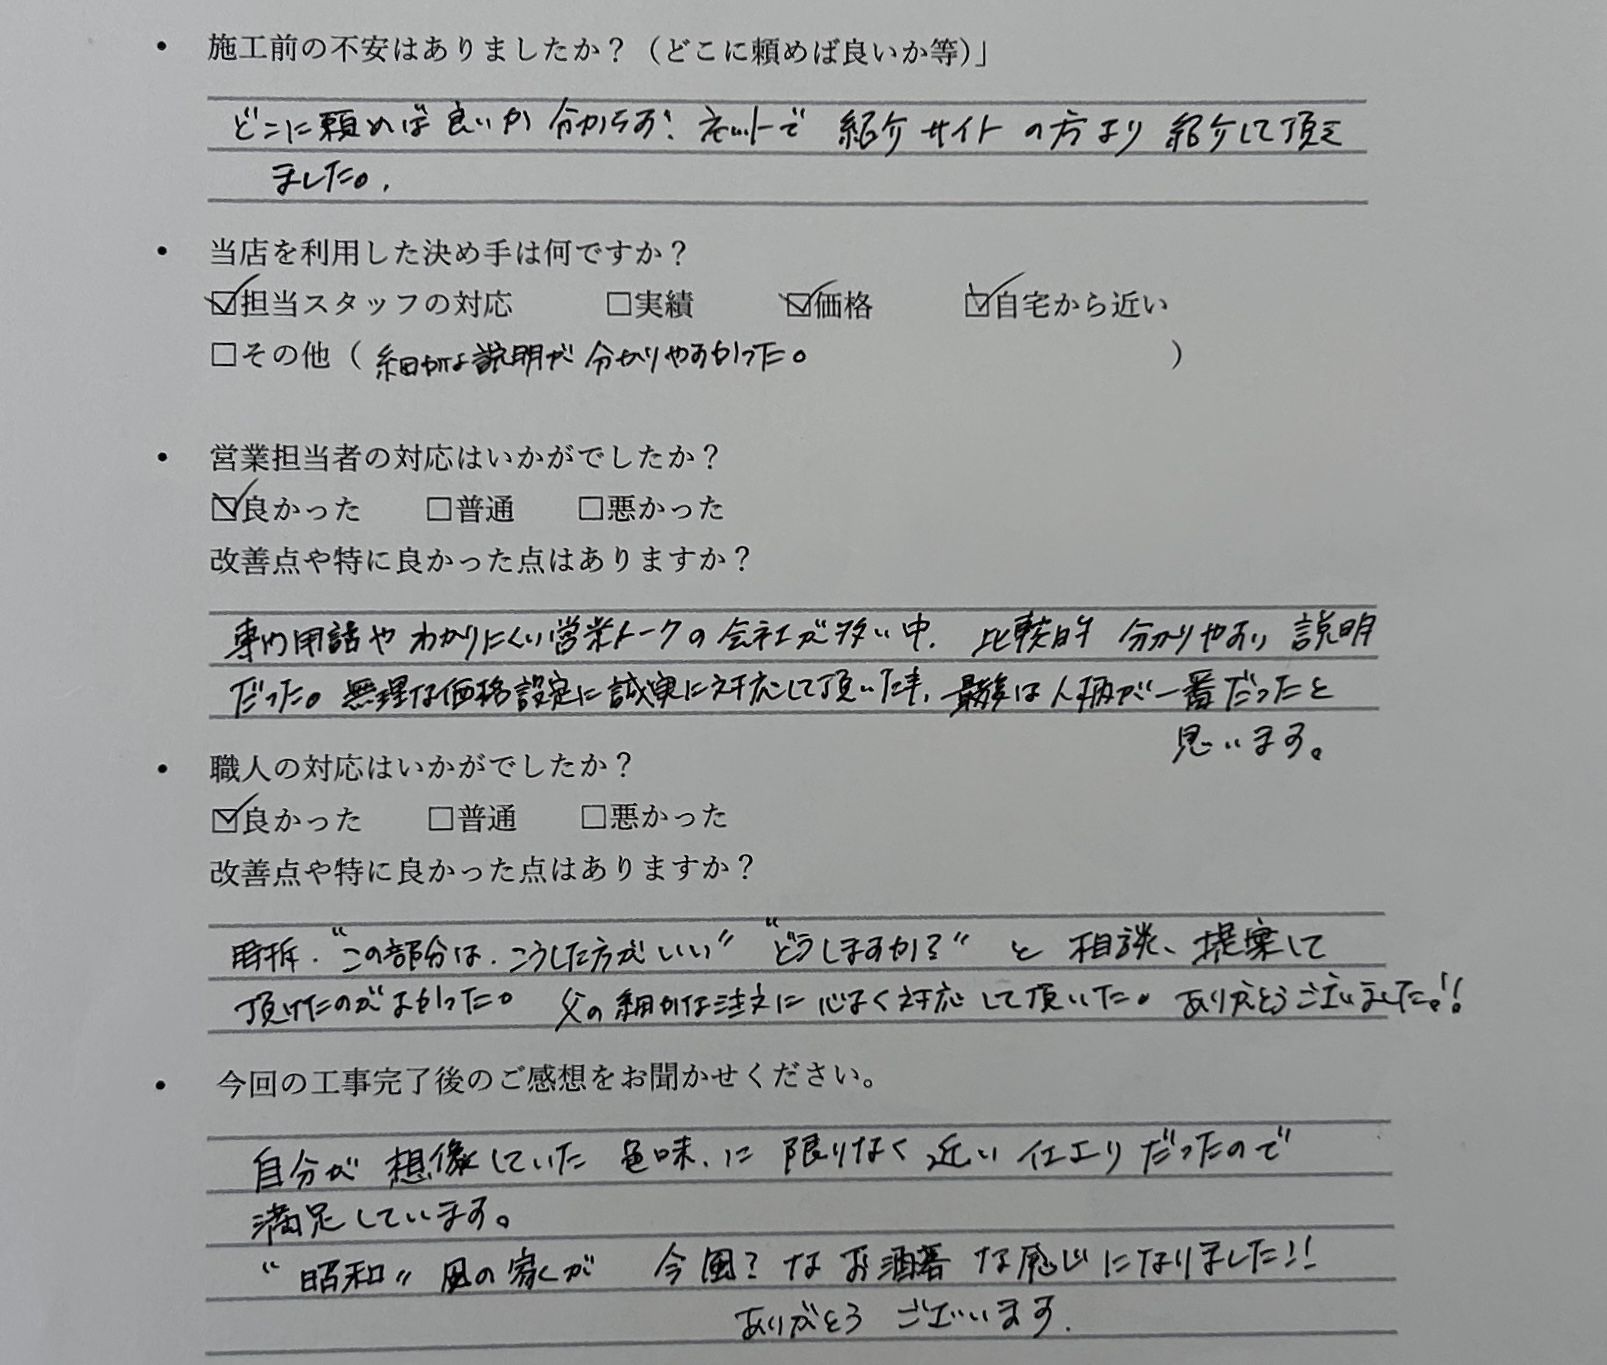 • 施工前の不安はありましたか？（どこに頼めば良いか等）」
どこに頼めば良いか分からず、ネットで紹介サイトの方より紹介して頂き
ました。
• 当店を利用した決め手は何ですか？
☑担当スタッフの対応 □実績 ☑価格 ☑自宅から近い
□その他（細かな説明が分かりやすかった。）
• 営業担当者の対応はいかがでしたか？
☑良かった □普通 □悪かった
改善点や特に良かった点はありますか？
専門用語やわかりにくい営業トークの会社が多い中、比較的分かりやすい説明
だった。無理な価格設定に誠実に対応して頂いた事、最後は人柄が一番だったと
思います。
• 職人の対応はいかがでしたか？
☑良かった □普通 □悪かった
改善点や特に良かった点はありますか？
時折、“この部分は、こうした方がいい” “どうしますか？” と相談、提案して
頂けたのがよかった。父の細かな注文に心よく対応して頂いた。ありがとうございました!!
• 今回の工事完了後のご感想をお聞かせください。
自分が想像していた色味に限りなく近い仕上りだったので
満足しています。
“昭和” 風の家が今風？なお洒落な感じになりました!!
ありがとうございます.